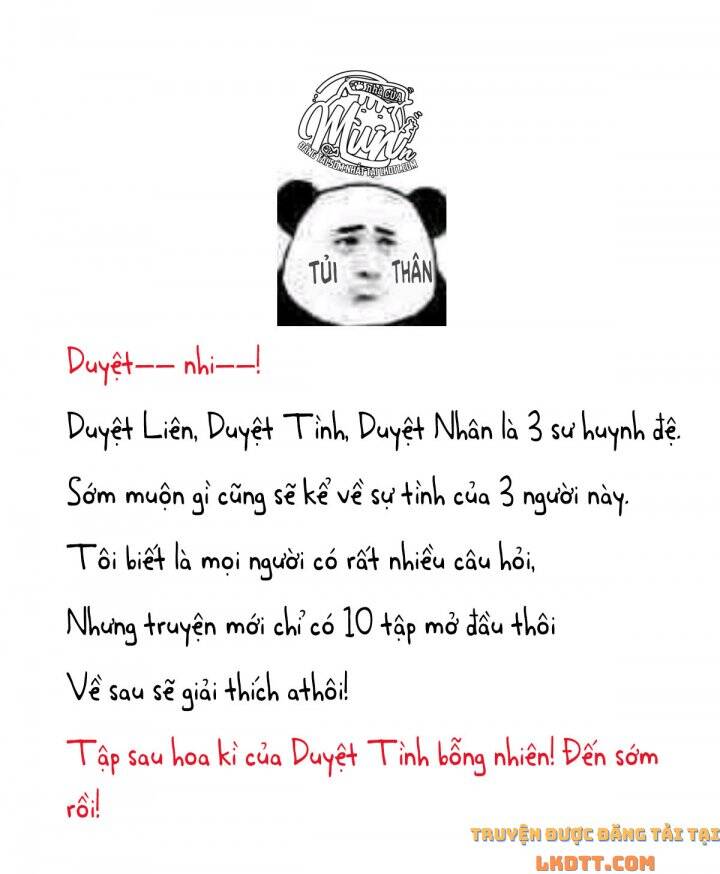 nhà của
Mun
ĐĂNG TẢI SỚM NHẤT TẠI LKDTT.COM
TỦI THÂN
Duyệt-- nhi--!
Duyệt Liên, Duyệt Tình, Duyệt Nhân là 3 sư huynh đệ.
Sớm muộn gì cũng sẽ kể về sự tình của 3 người này.
Tôi biết là mọi người có rất nhiều câu hỏi,
Nhưng truyện mới chỉ có 10 tập mở đầu thôi
Về sau sẽ giải thích athôi!
Tập sau hoa kì của Duyệt Tình bỗng nhiên! Đến sớm
rồi!
TRUYỆN ĐƯỢC ĐĂNG TẢI TẠI
LKDTT.COM